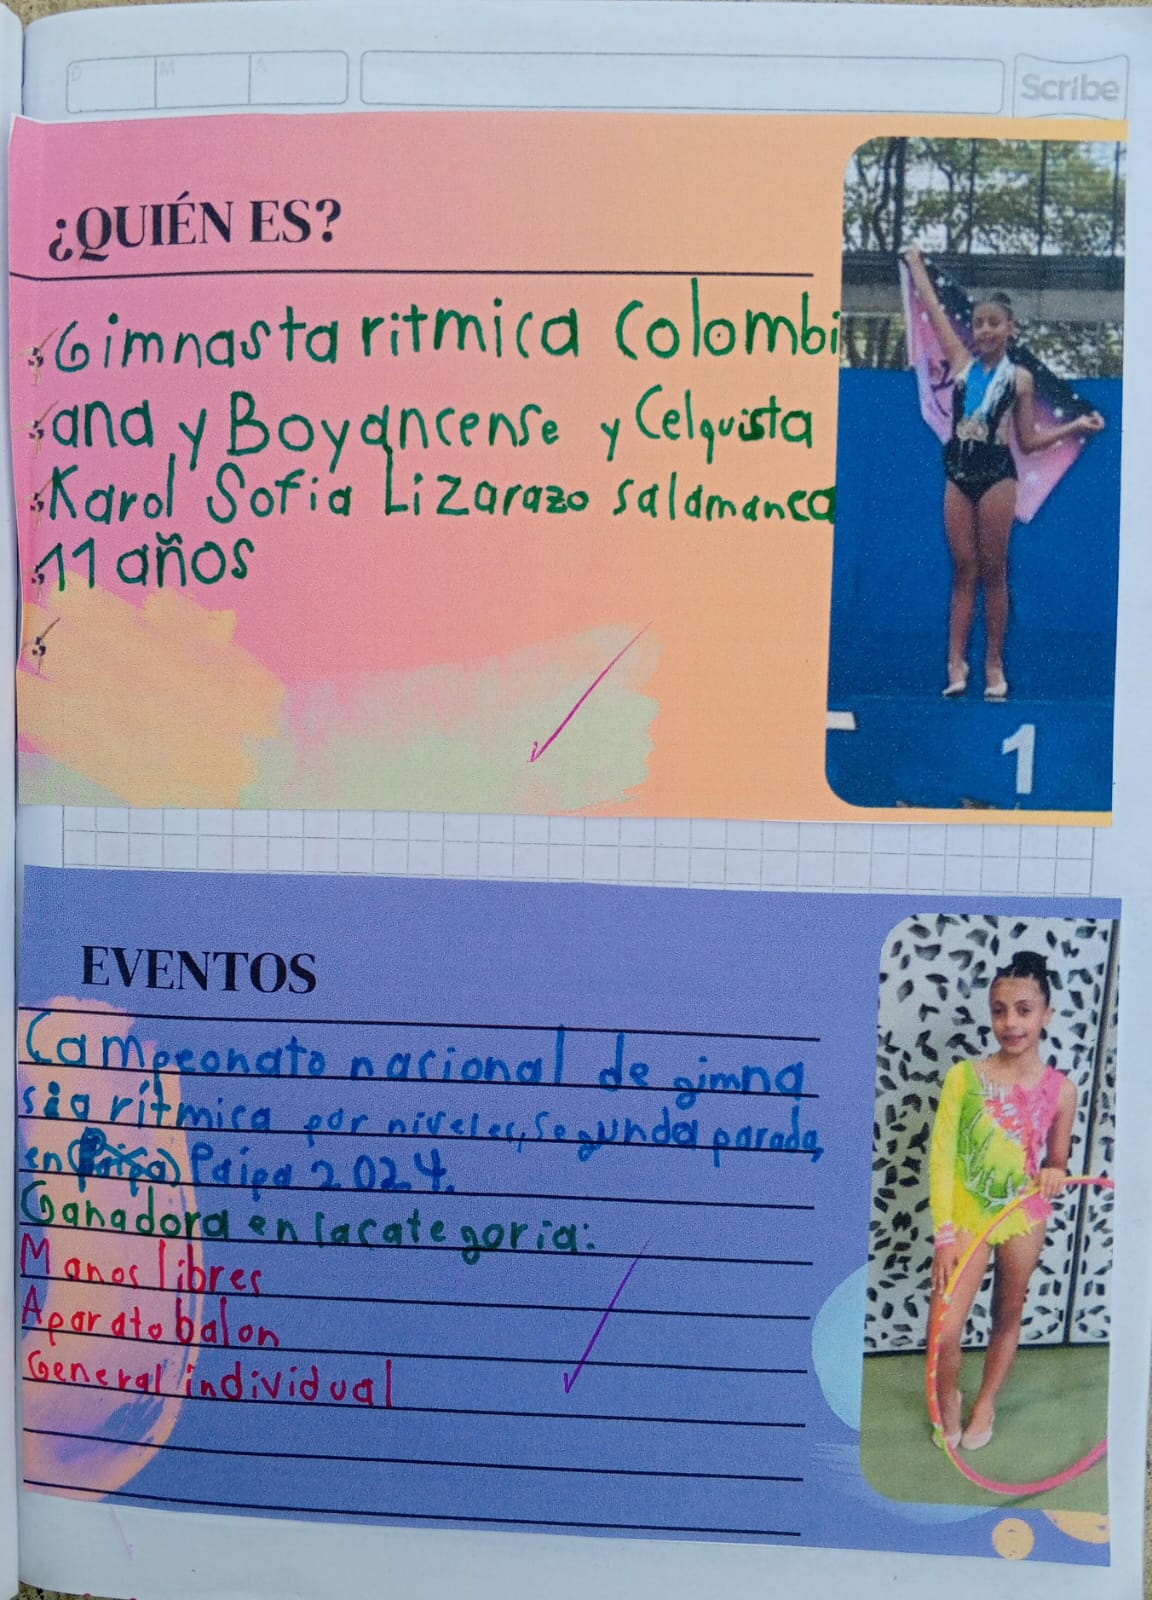 D M A
Scribe
¿QUIÉN ES?
Gimnasta ritmica Colombi
ana y Boyancense y Celquista
Karol Sofia Lizarazo Salamanca
11 años
1
EVENTOS
Campeonato nacional de gimna
sia rítmica por niveles, Segunda parada,
en (Paipa) Paipa 2024.
Ganadora en la categoria:
Manos libres
Aparato balon
General individual